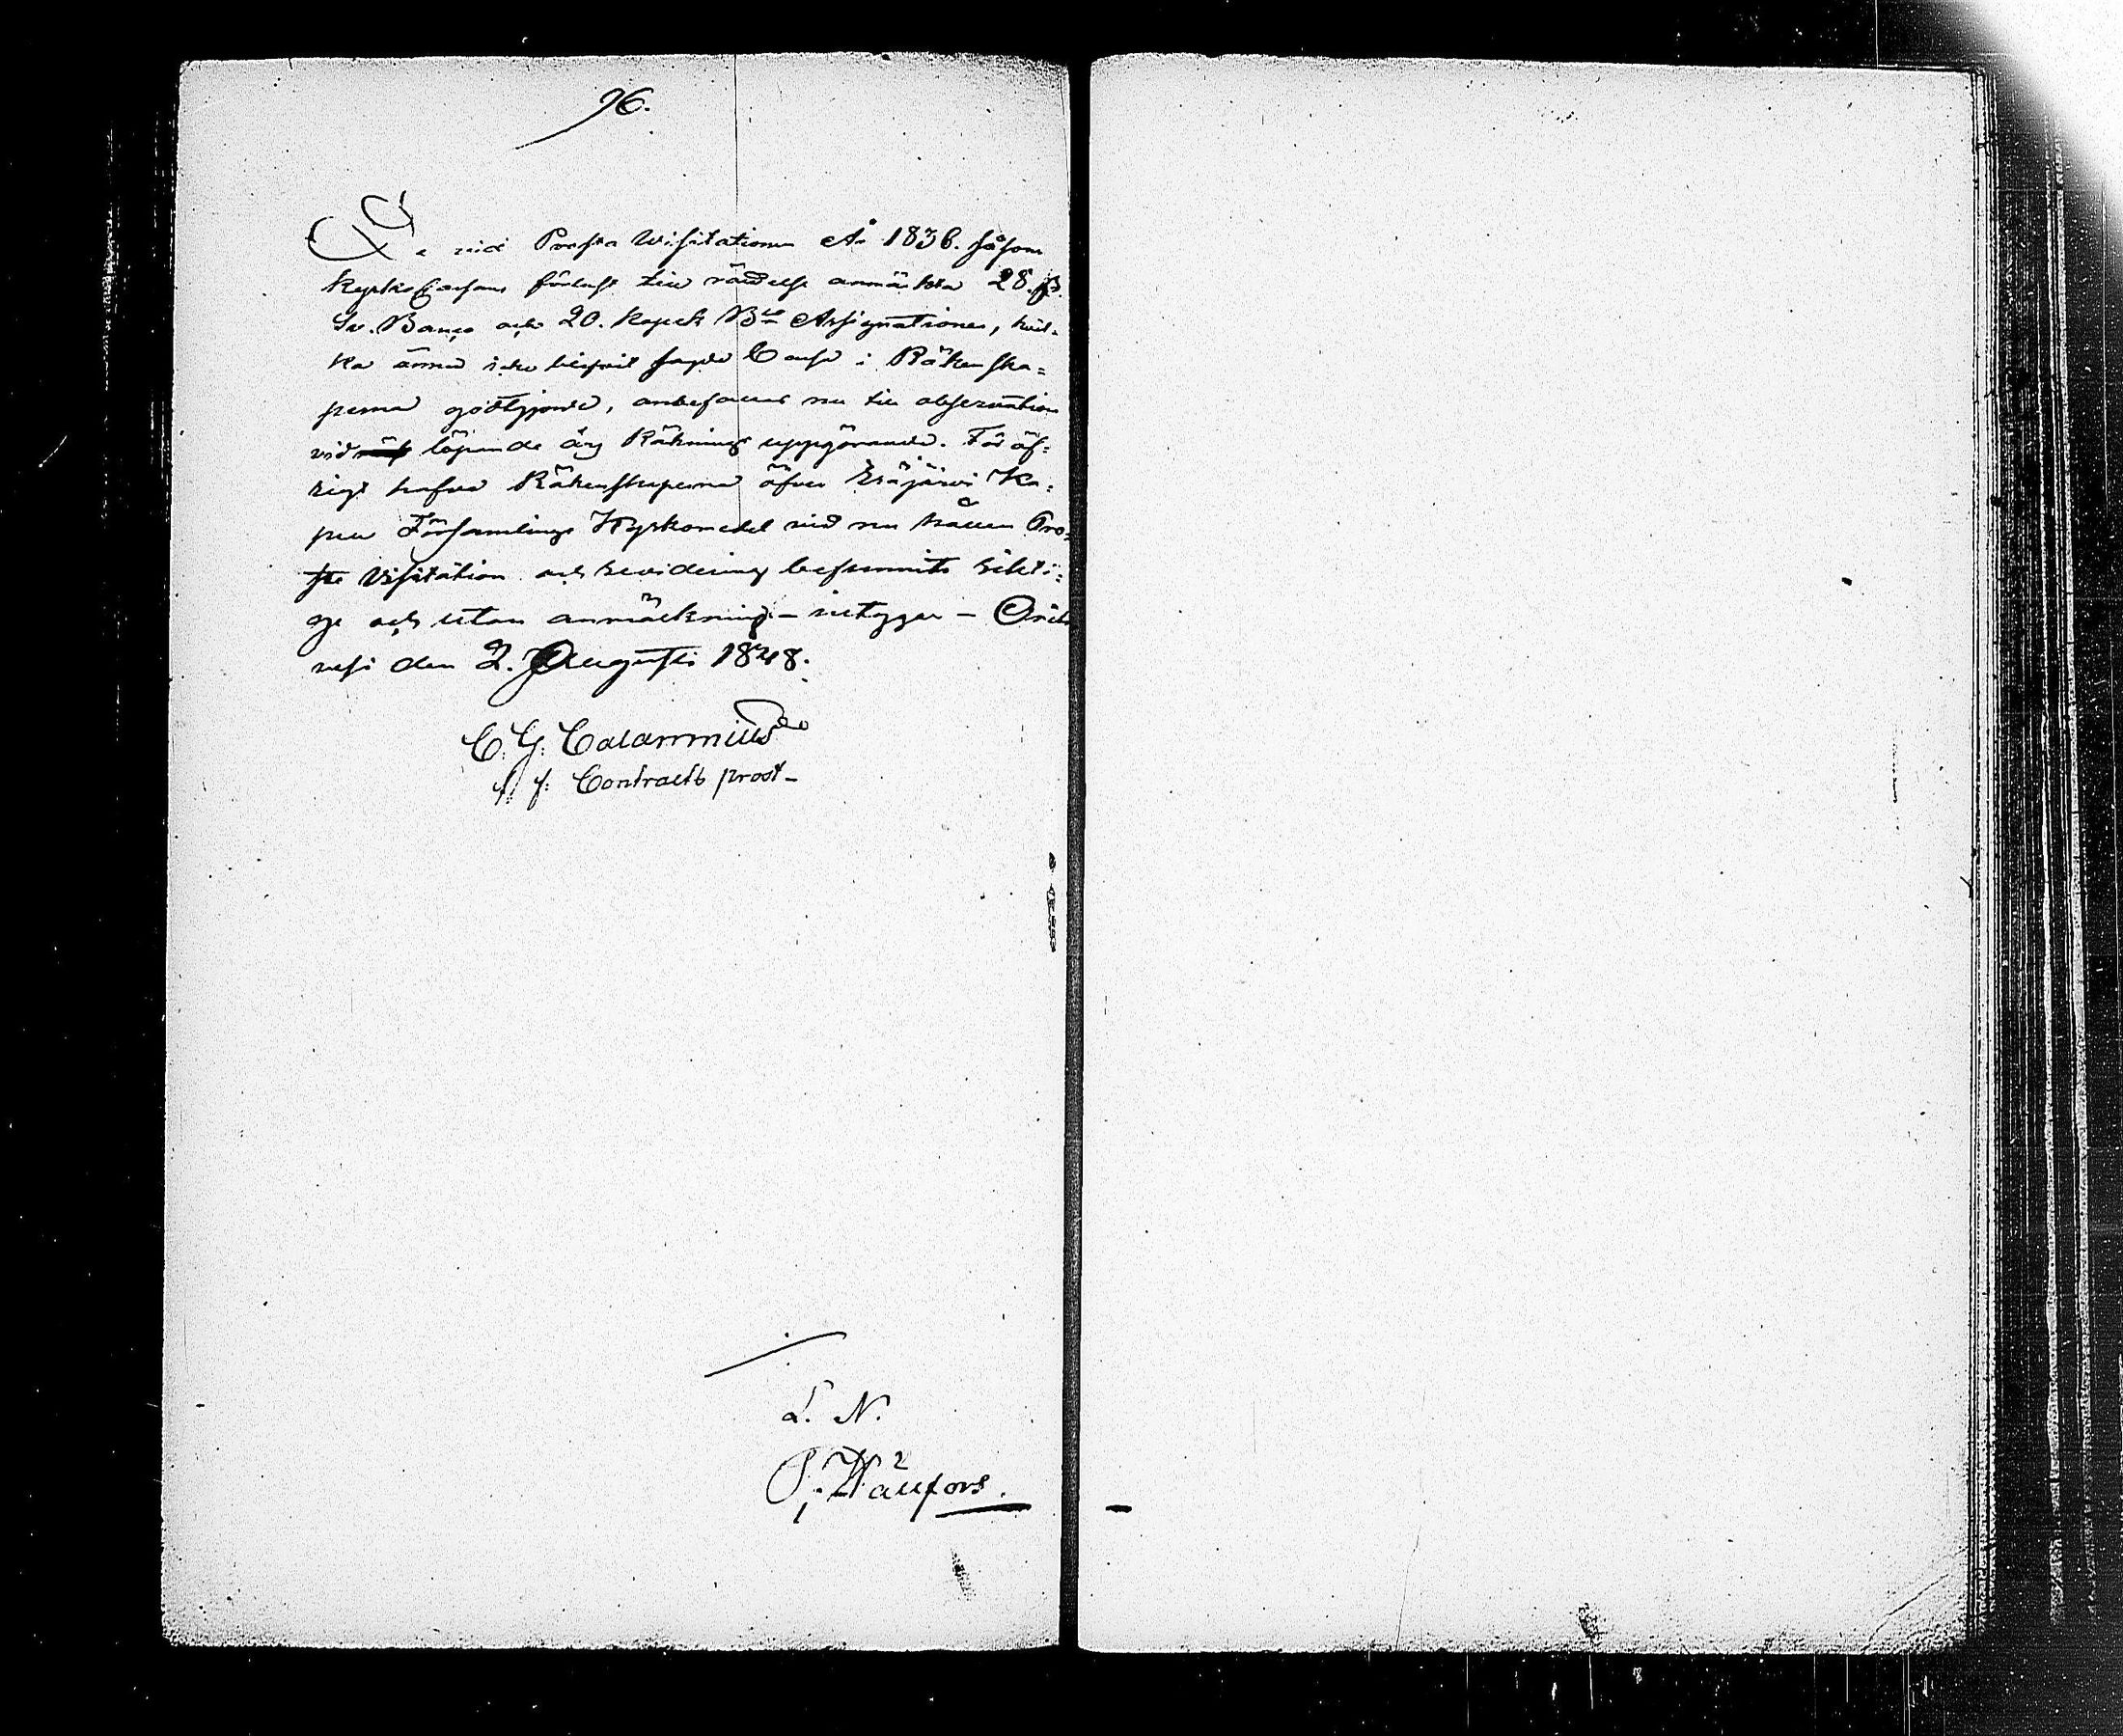 96.
De vid Prosta Wisitationen År 1836. såsom
KyrkoCassans förlust till rättelse anmärkta 28. ß.
Sv. Banco och 20. Kopek Bco Assignationer, hvil-
ka ännu icke blifvit sagde Cassa i Räkenska=
perna godtgjorde, anbefalles nu till observation
vid löpande års Räknings uppgörande. För öf=
rigt hafva Räkenskaperna öfver Eräjärvi Ka=
pell Församlings Kyrkomedel vid nu hållen Pro=
ste Visitation och revidering befunnits rikti=
ge och utan anmärkning – intygar – Orih
vesi den 2. Augusti 1848.
C. G. Calamnius
t. f. Contracts prost –
L. N.
P. Hällfors.